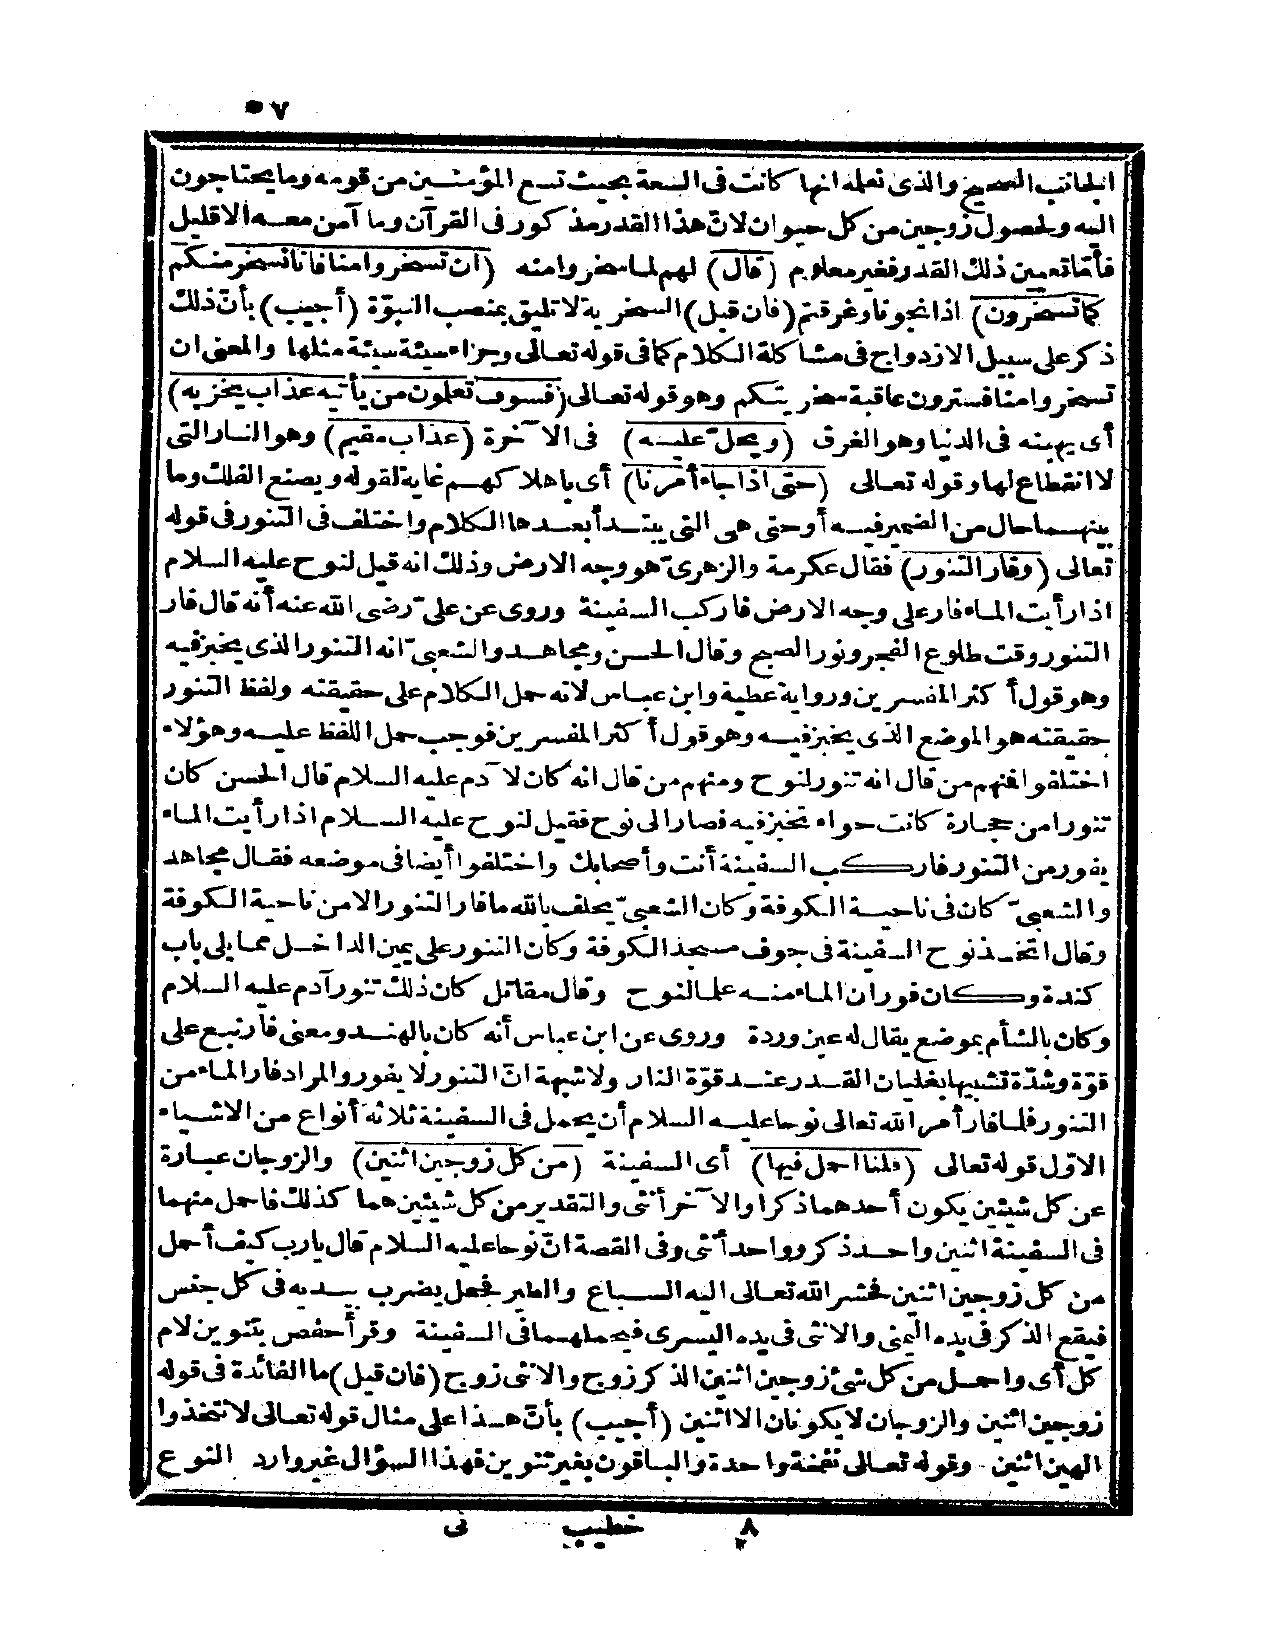 ٥٧
الجانب الصحيح والذى نعلمه انها كانت فى السعة بحيث تسع المؤمنين من قومه وما يحتاجون
اليه ولحصول زوجين من كل حيوان لانّ هذا القدر مذكور فى القرآن وما آمن معه الا قليل
فأمّا تعيين ذلك القدر فغير معلوم (قال) لهم لما سخروا منه (ان تسخروا منا فانا نسخر منكم
كما تسخرون) اذا نجونا وغرقتم (فان قيل) السخرية لا تليق بمنصب النبوّة (أجيب) بأنّ ذلك
ذكر على سبيل الازدواج فى مشاكلة الكلام كما فى قوله تعالى وجزاء سيئة سيئة مثلها والمعنى ان
تسخروا منا فسترون عاقبة سخريتكم وهو قوله تعالى (فسوف تعلمون من يأتيه عذاب يخزيه)
أى يهينه فى الدنيا وهو الغرق (ويحلّ عليه) فى الآخرة (عذاب مقيم) وهو النار التى
لا انقطاع لها وقوله تعالى (حتى اذا جاء أمرنا) أى باهلاكهم غاية لقوله ويصنع الفلك وما
بينهما حال من الضمير فيه أو حتى هى التى يبتدأ بعدها الكلام واختلف فى التنور فى قوله
تعالى (وفار التنور) فقال عكرمة والزهرىّ هو وجه الارض وذلك انه قيل لنوح عليه السلام
اذا رأيت الماء فار على وجه الارض فاركب السفينة وروى عن علىّ رضى الله عنه أنه قال فار
التنور وقت طلوع الفجر ونور الصبح وقال الحسن ومجاهد والشعبىّ انه التنور الذى يخبز فيه
وهو قول أكثر المفسرين ورواية عطية وابن عباس لانه حمل الكلام على حقيقته ولفظ التنور
حقيقته هو الموضع الذى يخبز فيه وهو قول أكثر المفسرين فوجب حمل اللفظ عليه وهؤلاء
اختلفوا فمنهم من قال انه تنور لنوح ومنهم من قال انه كان لآدم عليه السلام قال الحسن كان
تنورا من حجارة كانت حواء تخبز فيه فصار الى نوح فقيل لنوح عليه السلام اذا رأيت الماء
يفور من التنور فاركب السفينة أنت وأصحابك واختلفوا أيضا فى موضعه فقال مجاهد
والشعبىّ كان فى ناحية الكوفة وكان الشعبىّ يحلف بالله ما فار التنور الا من ناحية الكوفة
وقال اتخذ نوح السفينة فى جوف مسجد الكوفة وكان التنور على يمين الداخل مما يلى باب
كندة وكان فوران الماء منه علما لنوح وقال مقاتل كان ذلك تنور آدم عليه السلام
وكان بالشأم بموضع يقال له عين وردة وروى عن ابن عباس أنه كان بالهند ومعنى فار نبع على
قوّة وشدّة تشبيها بغليان القدر عند قوّة النار ولا شبهة انّ التنور لا يفور والمراد فار الماء من
التنور فلما فار أمر الله تعالى نوحا عليه السلام أن يحمل فى السفينة ثلاثة أنواع من الاشياء
الاوّل قوله تعالى (قلنا احمل فيها) أى السفينة (من كل زوجين اثنين) والزوجان عبارة
عن كل شيئين يكون أحدهما ذكرا والآخر أنثى والتقدير من كل شيئين هما كذلك فاحمل منهما
فى السفينة اثنين واحد ذكر وواحد أنثى وفى القصة انّ نوحا عليه السلام قال يارب كيف أحمل
من كل زوجين اثنين فحشر الله تعالى اليه السباع والطير فجعل يضرب بيديه فى كل جنس
فيقع الذكر فى يده اليمنى والانثى فى يده اليسرى فيحملهما فى السفينة وقرأ حفص بتنوين لام
كل أى واحمل من كل شئ زوجين اثنين الذكر زوج والانثى زوج (فان قيل) ما الفائدة فى قوله
زوجين اثنين والزوجان لا يكونان الا اثنين (أجيب) بأنّ هذا على مثال قوله تعالى لا تتخذوا
الهين اثنين وقوله تعالى نفخة واحدة والباقون بغير تنوين فهذا السؤال غير وارد النوع
٨ خطيب نى